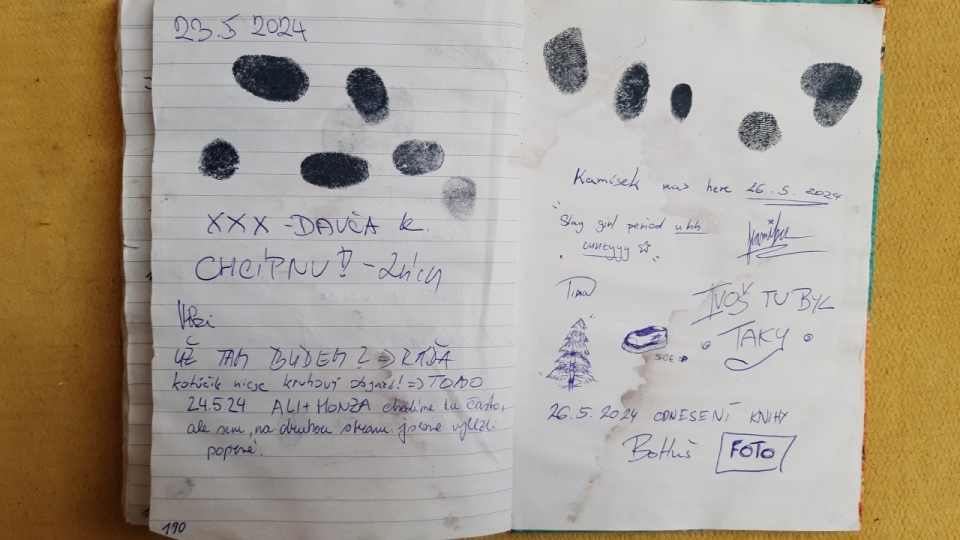 23.5 2024
XXX - DAVČA K.
CHCÍPNU!! -
UŽ TAM BUDEM? => RÁĎA
kotúčik nieje kruhový objazd! => TOMO
24.5.24 ALI + HONZA chodíme tu často,
ale sem, na druhou stranu jsme vylezli
poprvé.
190
Kamisek was here 26.5.2024
"Slay girl period uhh
cuntyyy ☆"
SHOE
IVOŠ TU BYL
TAKY
26.5.2024 ODNESENÍ KNIHY
FOTO